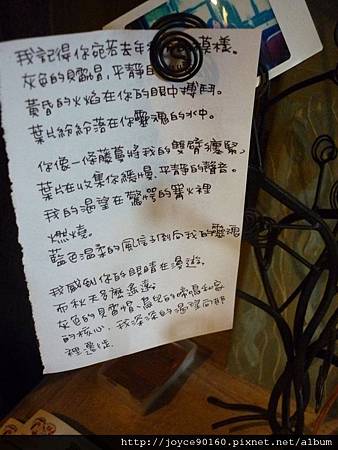 我記得你宛若去年秋 模樣。
灰色的貝雷帽,平靜
黃昏的火焰在你的眼中搏鬥。
葉片紛紛落在你靈魂的水中。
你像一條藤蔓將我的雙臂纏緊,
葉片在收集你緩慢、平靜的聲音。
我的渴望在驚愕的篝火裡
燃燒。
藍色溫柔的風信子倒向我的靈魂
我感到你的眼睛在漫遊,
而秋天多麼遙遠。
灰色的貝雷帽、鳥兒的啼鳴和家
的核心,我深深的渴望向那
裡遷徙.
http://joyce90160.pixnet.net/album